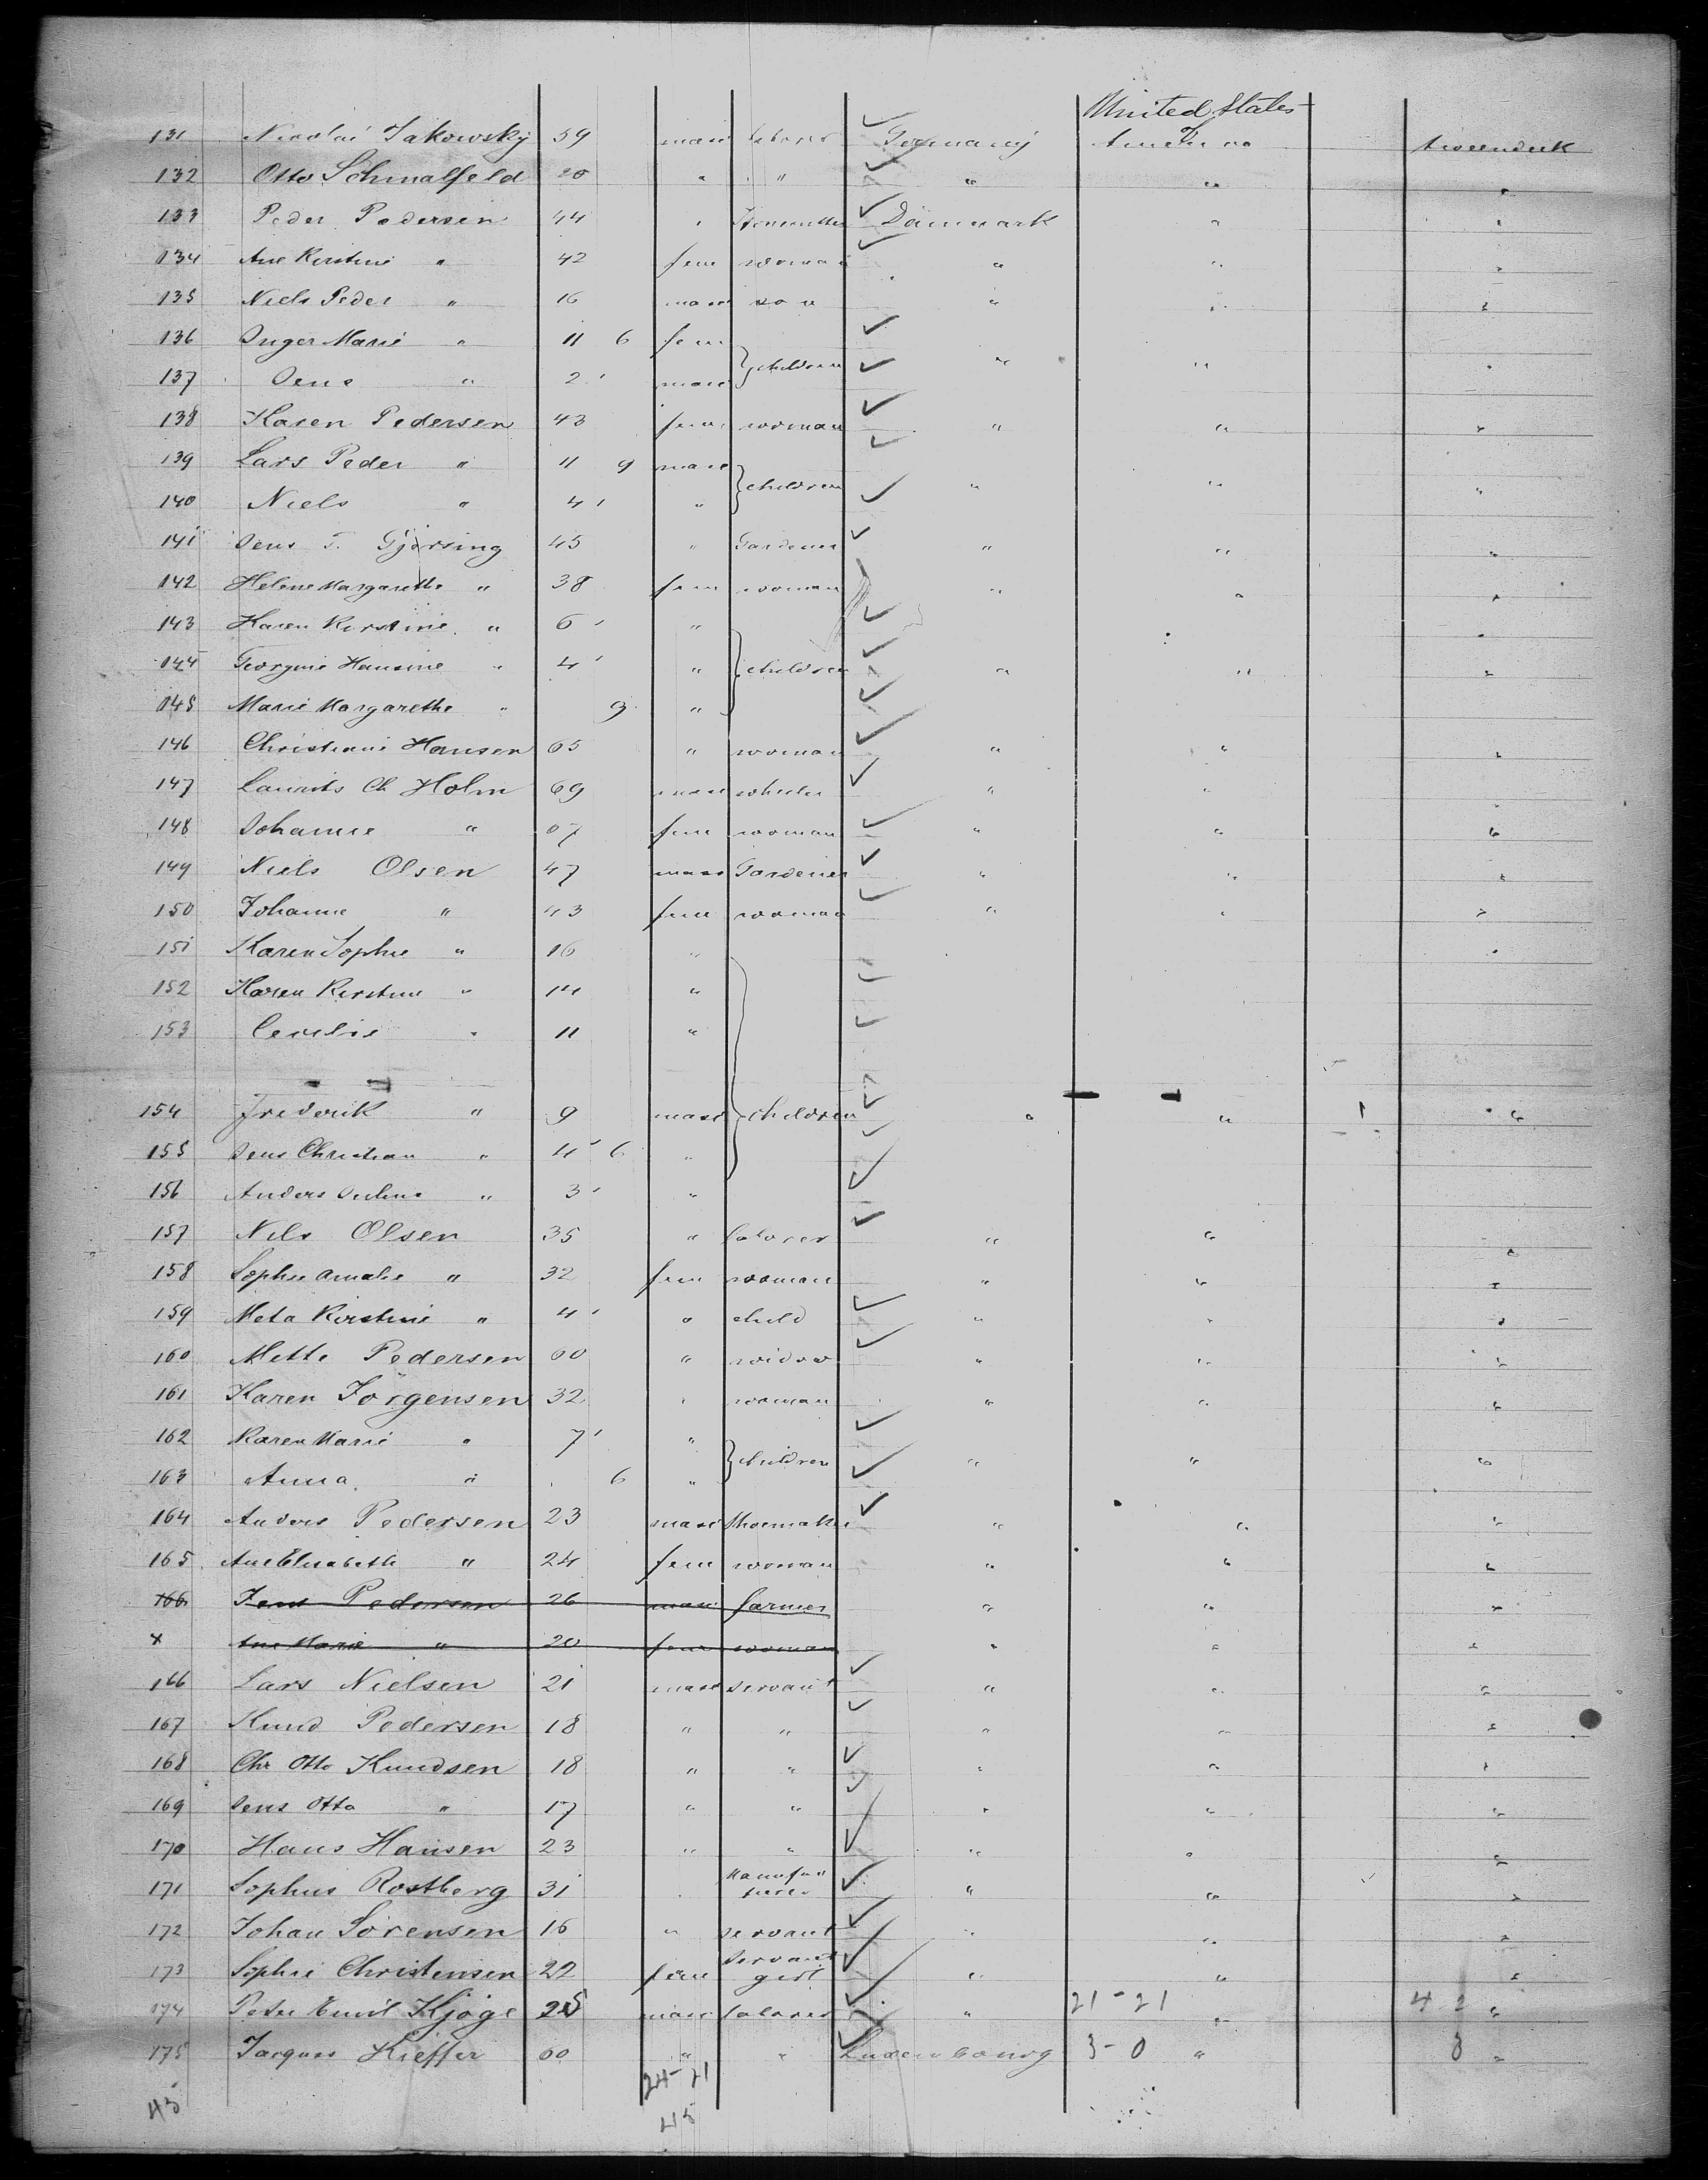 United States
131 Nicolai Jakowsky 59 masc laborer Germany America tweendeck
132 Otto Schmalfeld 20 " " " " "
133 Peder Pedersen 44 " Stonecutter Dänmark " "
134 Ane Kirstine " 42 fem woman " " "
135 Niels Peder " 16 masc son " " "
136 Inger Marie " 11 6 fem
137 Jens " 2 masc } children " " "
138 Karen Pedersen 43 fem woman " " "
139 Lars Peder " 11 9 masc
140 Niels " 4 " } children " " "
141 Jens F. Gjörsing 45 " Gardener " " "
142 Helene Margarethe " 38 fem woman " " "
143 Karen Kirstine " 6 "
144 Georgine Hansine " 4 " } children " " "
145 Marie Margarethe " 9 "
146 Christiane Hansen 65 " woman " " "
147 Laurits Ch Holm 69 masc " " "
148 Johanne " 67 fem woman " " "
149 Niels Olsen 47 masc Gardener " " "
150 Johanne " 43 fem woman " " "
151 Karen Sophie " 16 " "
152 Karen Kirstine " 14 "
153 Cecilie " 11 "
154 Frederik " 9 masc } children " " 1 "
155 Jens Christian " 4 6 "
156 Anders Julius " 3 "
157 Nils Olsen 35 " laborer " " "
158 Sophie Amalie " 32 fem woman " " "
159 Meta Kirstine " 4 " child " " "
160 Mette Pedersen 60 " widow " " "
161 Karen Jörgensen 32 " woman " " "
162 Karen Marie " 7 "
163 Anna " 6 " } children " " "
164 Anders Pedersen 23 masc Shoemaker " " "
165 Ane Elisabeth " 24 fem woman " " "
166 Jens Pedersen 26 masc farmer " " "
x Ane Marie " 20 fem woman " " "
166 Lars Nielsen 21 masc servant " " "
167 Knud Pedersen 18 " " " " "
168 Chr Otto Knudsen 18 " " " " "
169 Jens Otto " 17 " " " " "
170 Hans Hansen 23 " " " " "
171 Sophus Rostberg 31 " Manufacturer " " "
172 Johan Sörensen 16 " servant " " "
173 Sophie Christensen 22 fem servant girl " " "
174 Peter Emil Kjöge 25 masc laborer " 21-21 " 42 "
175 Jacques Kieffer 60 " " Luxembourg 3-0 " 3 "
45 24-21
45